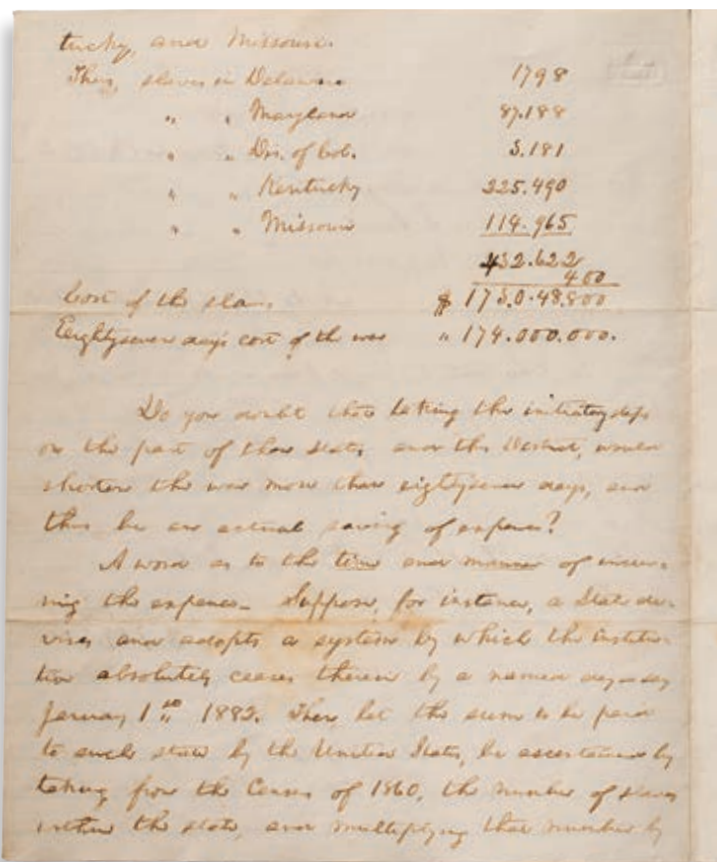 tucky, and Missouri.
Thus, slaves in Delaware 1798
" " Maryland 87.188
" " Dis. of Col. 3.181
" " Kentucky 225.490
" " Missouri 114.965
432.622
400
Cost of the slaves $ 173.048.800
Eightyseven days cost of the war " 174.000.000.
Do you doubt that taking the initiatory steps
on the part of those states, and this District, would
shorten the war more than eightyseven days, and
thus be an actual saving of expense?
A word as to the time and manner of incur-
ring the expense. Suppose, for instance, a State de-
vises and adopts a system by which the institu-
tion absolutely ceases therein by a named day—say
January 1st 1882. Then, let the sum to be paid
to such state by the United States, be ascertained by
taking from the Census of 1860, the number of slaves
within the state, and multiplying that number by